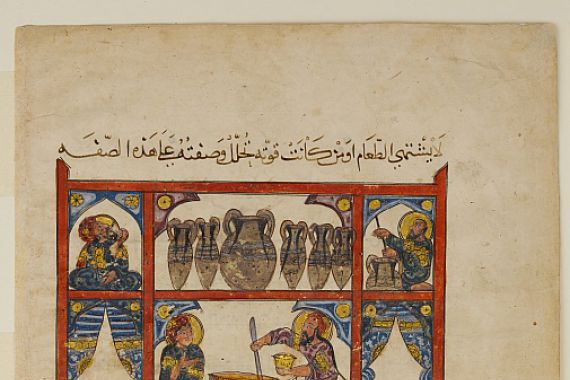 لا يشتهي الطعام اومن كانت قوته تحلل وصفته على هذه الصفه